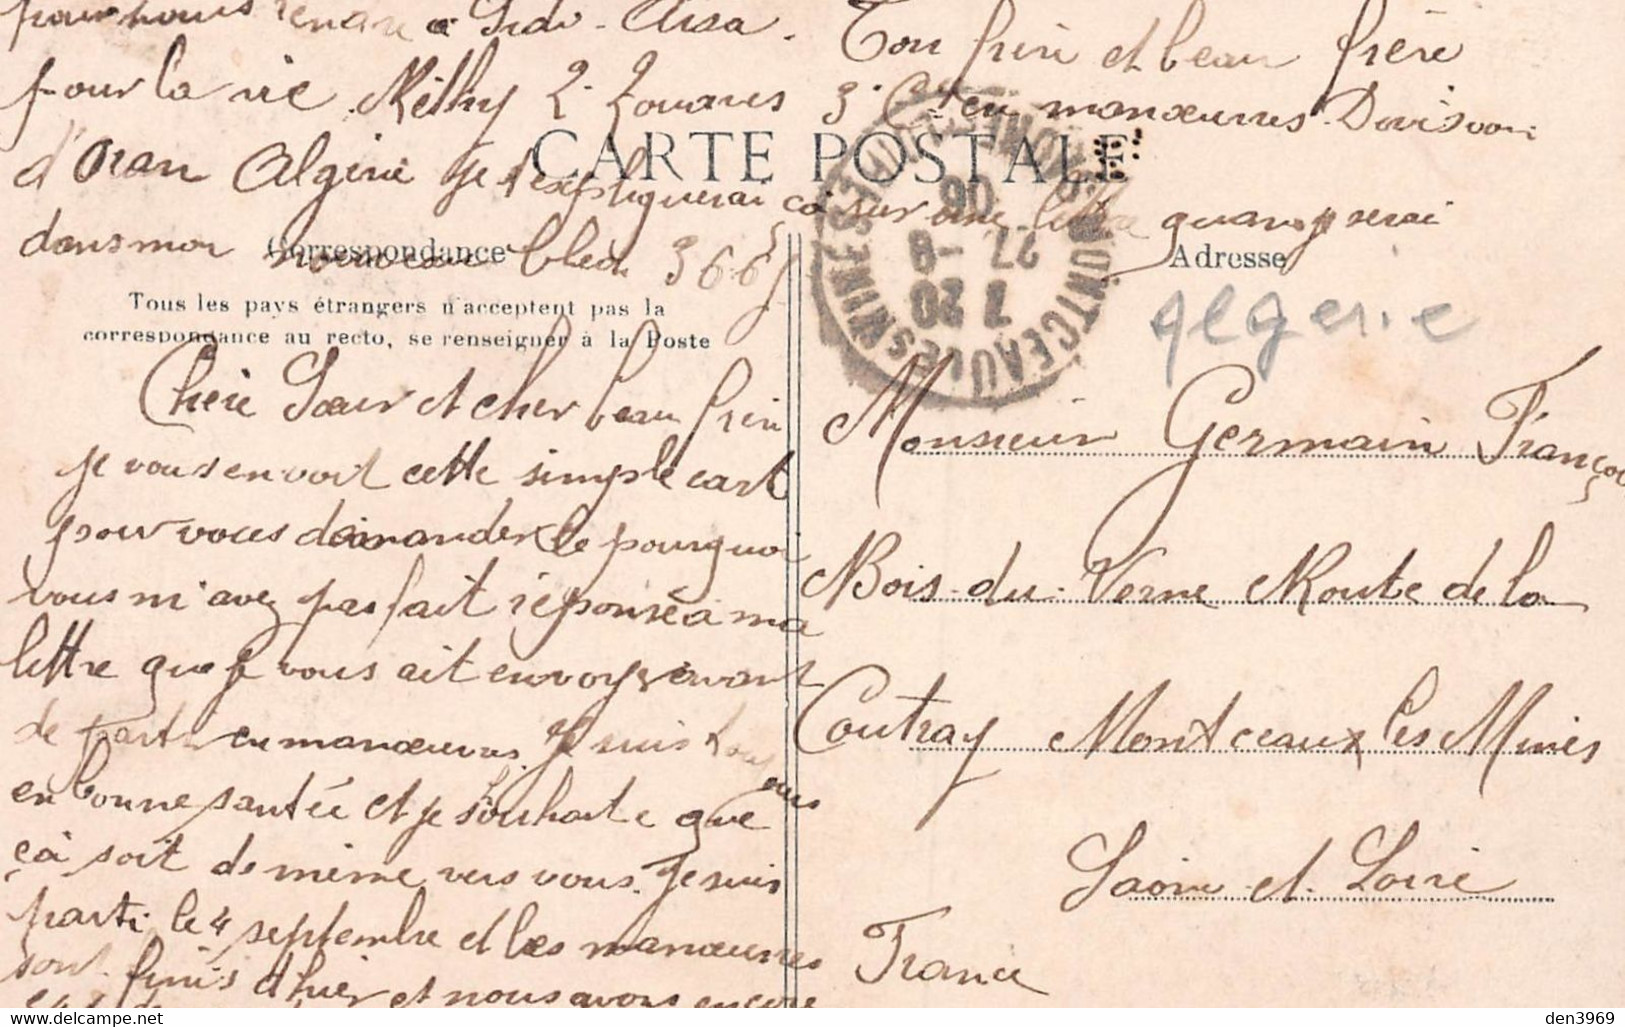 pour nous rendre a Sidi-Aissa. Ton frère et beau frère
pour la vie Mélhy 2e Zouaves 3e Cie en manœuvres Division
d'Oran Algérie Je t'expliquerai ça sur une lettre quand je serai
dans mon nouveau bled 3665
CARTE POSTALE
Correspondance
Adresse
Tous les pays étrangers n'acceptent pas la
correspondance au recto, se renseigner à la Poste
MONTCEAU LES MINES SAONE
7 20
27 -9
06
Algerie
Chère Sœur et cher beau frère
je vous envoit cette simple cart
pour vous demander le pourquoi
vous m'avez pas fait réponse à ma
lettre que je vous ait envoyer avant
de partir en manœuvres. Je suis toujours
en bonne santée et je souhaite que
ça soit de même vers vous. Je suis
parti le 4 septembre et les manœuvres
sont finis d'hier et nous avons encore
Monsieur Germain François
Bois-du-Verne Route de la
Coutray Montceaux les Mines
Saone et Loire
France
den3969